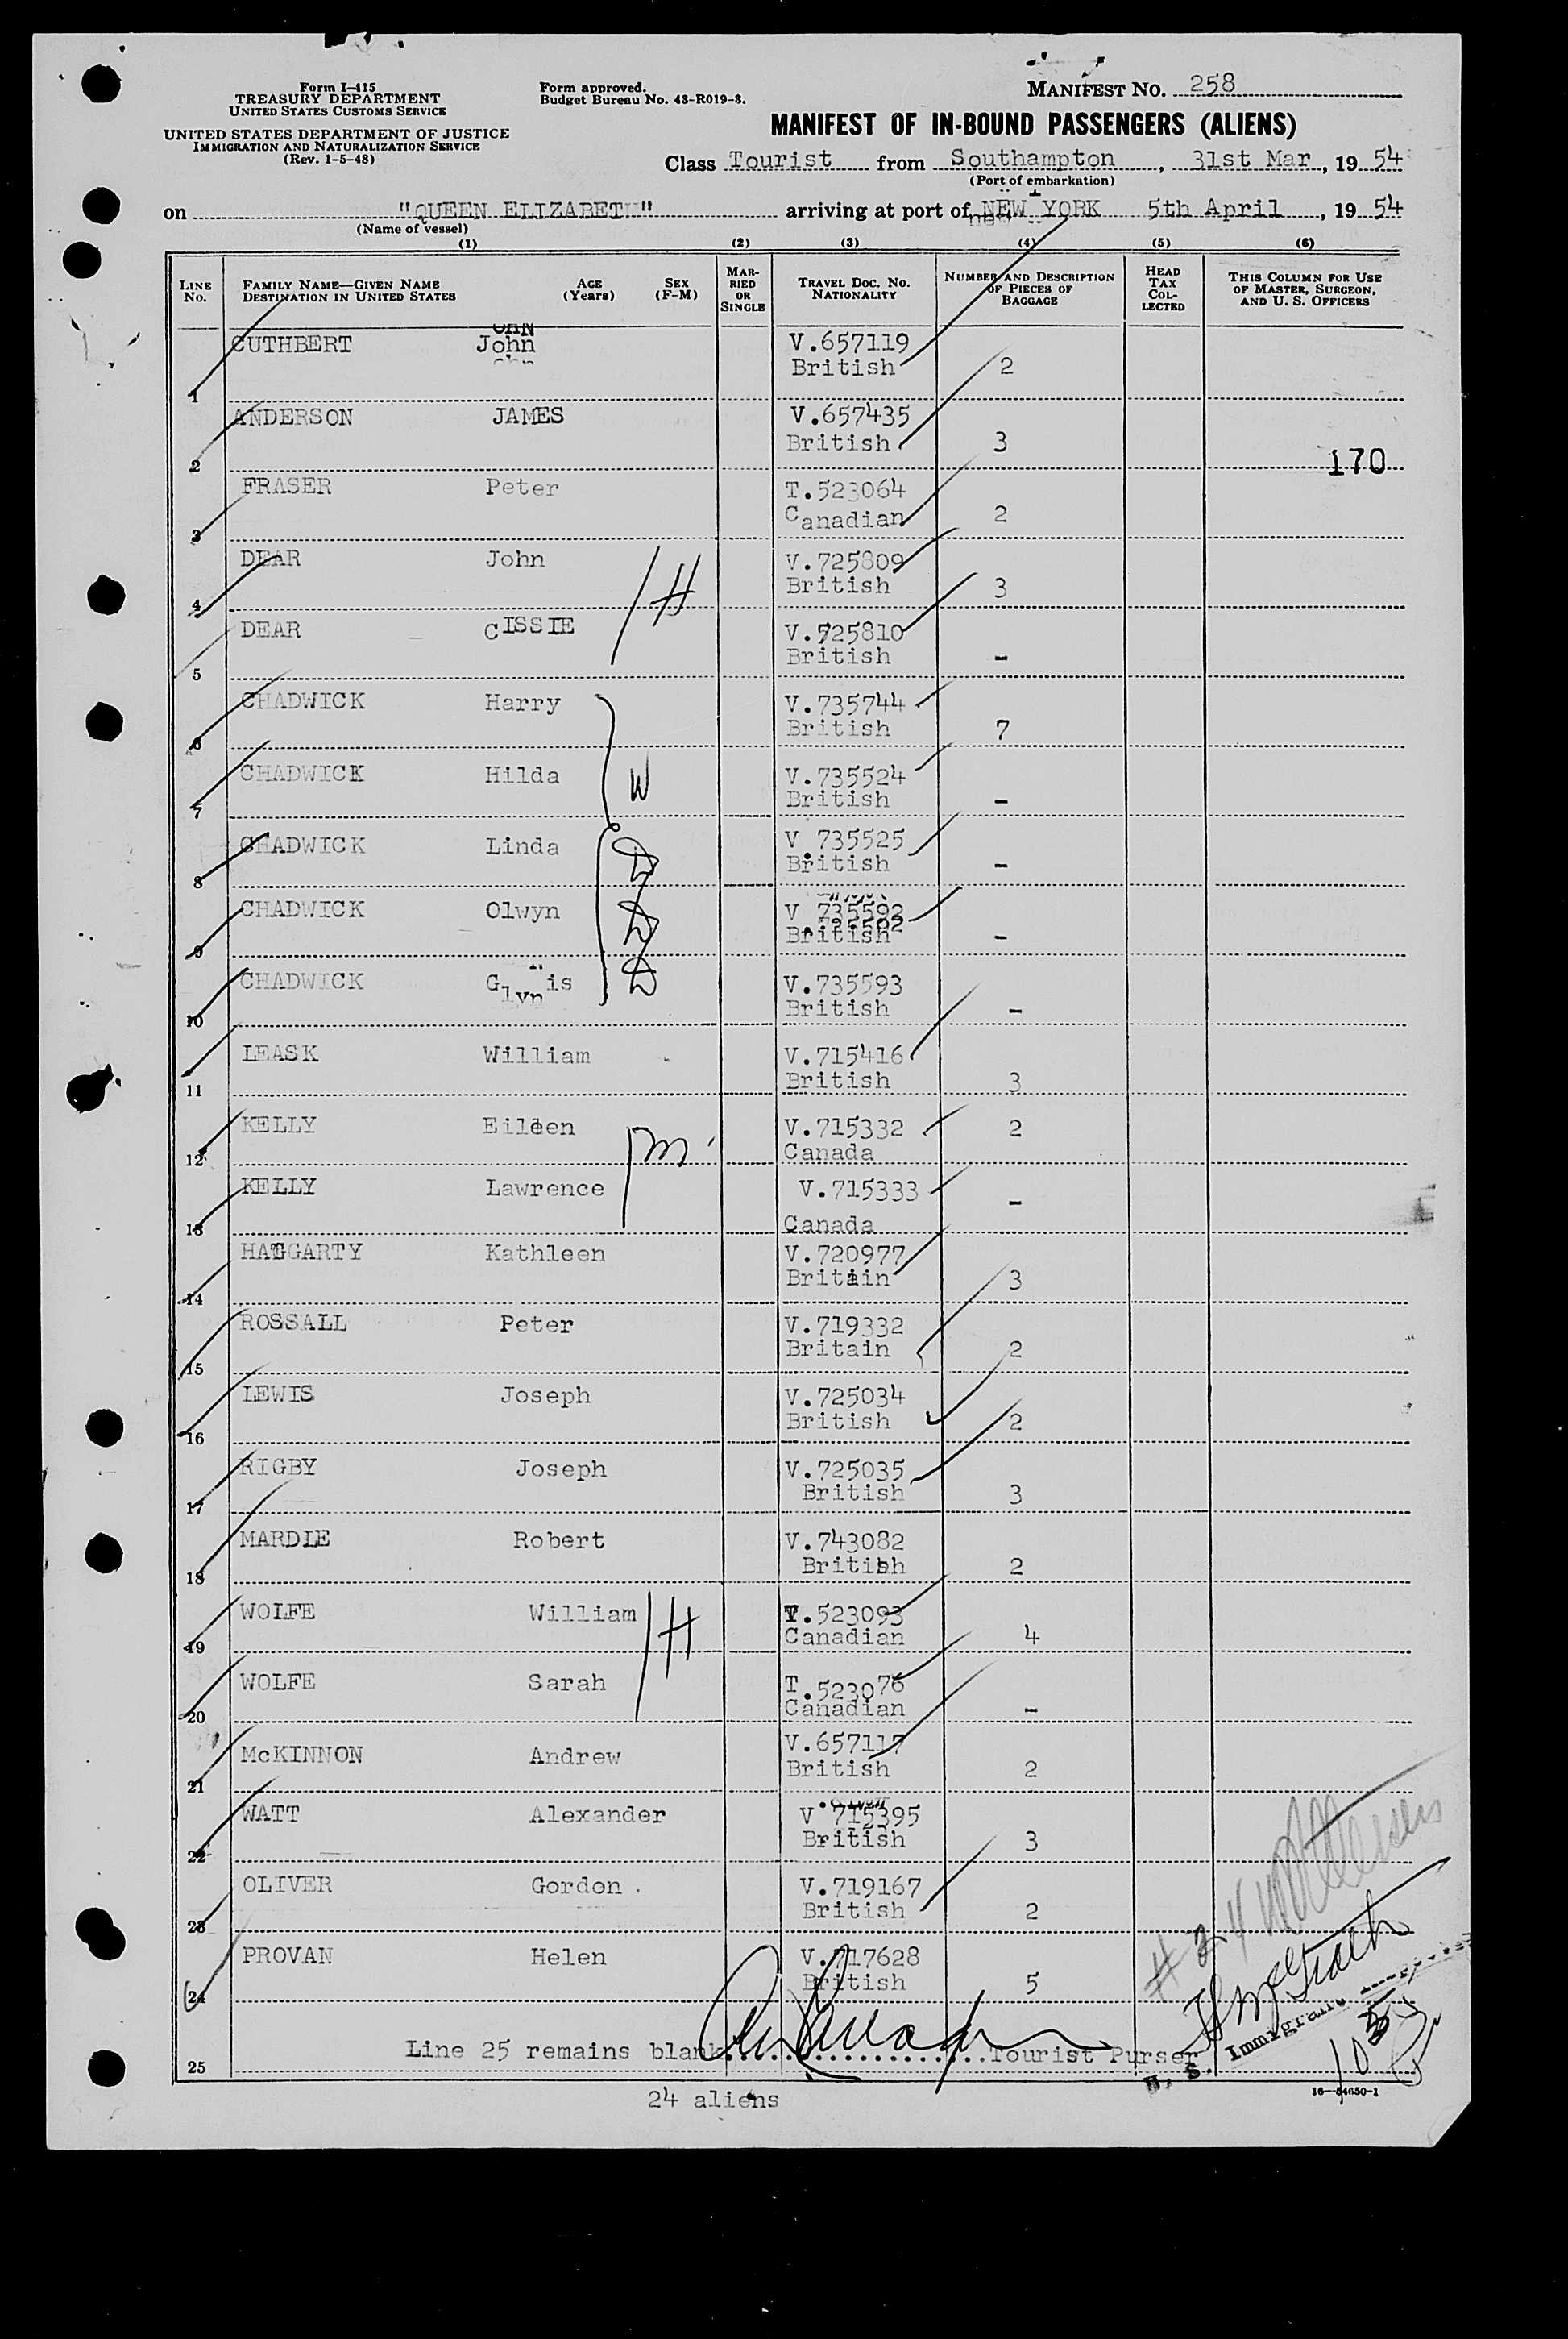 Form I-415
TREASURY DEPARTMENT
UNITED STATES CUSTOMS SERVICE
UNITED STATES DEPARTMENT OF JUSTICE
IMMIGRATION AND NATURALIZATION SERVICE
(Rev. 1-5-48)
Form approved.
Budget Bureau No. 43-R019-3.
MANIFEST NO. 258
MANIFEST OF IN-BOUND PASSENGERS (ALIENS)
Class Tourist from Southampton, 31st Mar, 19 54
(Port of embarkation)
on "QUEEN ELIZABETH" arriving at port of NEW YORK 5th April, 19 54
(Name of vessel)
(1) (2) (3) (4) (5) (6)
LINE NO. FAMILY NAME—GIVEN NAME DESTINATION IN UNITED STATES AGE (Years) SEX (F-M) MARRIED OR SINGLE TRAVEL DOC. NO. NATIONALITY NUMBER AND DESCRIPTION OF PIECES OF BAGGAGE HEAD TAX COLLECTED THIS COLUMN FOR USE OF MASTER, SURGEON, AND U. S. OFFICERS
1 CUTHBERT John V.657119
British 2
2 ANDERSON JAMES V.657435
British 3
170
3 FRASER Peter T.523064
Canadian 2
4 DEAR John H V.725809
British 3
5 DEAR CISSIE V.725810
British -
6 CHADWICK Harry V.735744
British 7
7 CHADWICK Hilda W V.735524
British -
8 CHADWICK Linda D V.735525
British -
9 CHADWICK Olwyn D V.735592
British -
10 CHADWICK Glynis D V.735593
British -
11 LEASK William V.715416
British 3
12 KELLY Eileen m V.715332 2
Canada
13 KELLY Lawrence V.715333 -
Canada
14 HAGGARTY Kathleen V.720977
Britain 3
15 ROSSALL Peter V.719332
Britain 2
16 LEWIS Joseph V.725034
British 2
17 RIGBY Joseph V.725035
British 3
18 MARDLE Robert V.743082
British 2
19 WOLFE William H T.523093
Canadian 4
20 WOLFE Sarah T.523076
Canadian -
21 McKINNON Andrew V.657117
British 2
22 WATT Alexander V.715395
British 3
23 OLIVER Gordon. V.719167
British 2
24 PROVAN Helen V.717628
British 5
# 24
25 Line 25 remains blank..................Tourist Purser
U. S. Immigrant
24 aliens
16—54650-1